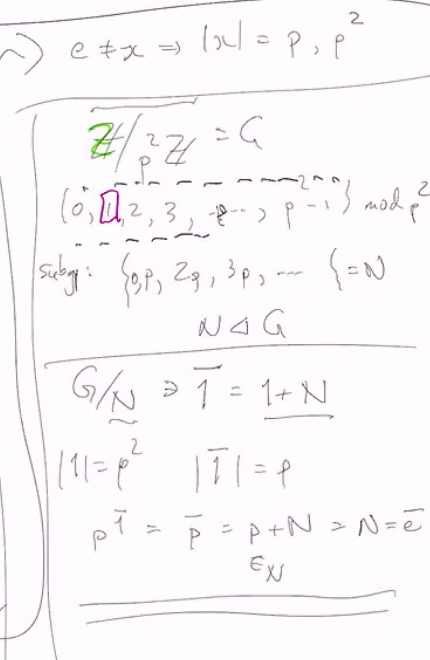 ⇒ e ≠ x ⇒ |x| = p, p²
ℤ/p²ℤ = G
{0, 1, 2, 3, ..., p²-1} mod p²
subgp: {0, p, 2p, 3p, ... } = N
N ⊲ G
G/N ∋ 1̄ = 1+N
|1| = p² |1̄| = p
p1̄ = p̄ = p+N = N = ē
∈N